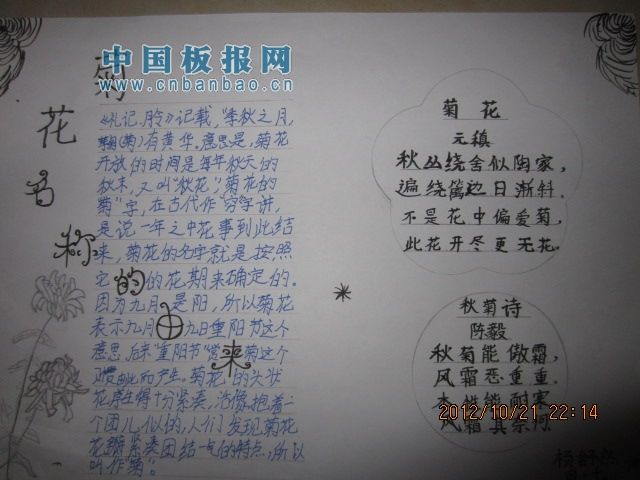 中国板报网
www.cnbanbao.cn
菊
花
名
称
的
由
来
《礼记.月令》记载，"季秋之月，
鞠(菊)有黄华。意思是，菊花
开放的时间是每年秋天的
秋末，又叫"秋花"，菊花的
菊"字，在古代作"穷"字讲，
是说一年之中花事到此结
来，菊花的名字就是按照
它的花期来确定的。
因为九月是阳，所以菊花
表示九月九日重阳节这个
意思。后来"重阳节"赏菊这个
习惯由此而产生。菊花的头状
花序生得十分紧凑，活像抱着一
个团儿似的，人们发现菊花
花瓣紧凑团结一气的特点，所以
叫作"菊"。
菊花
元稹
秋丛绕舍似陶家，
遍绕篱边日渐斜。
不是花中偏爱菊，
此花开尽更无花。
秋菊诗
陈毅
秋菊能傲霜，
风霜恶重重。
本性能耐寒
风霜其奈何
2012/10/21 22:14